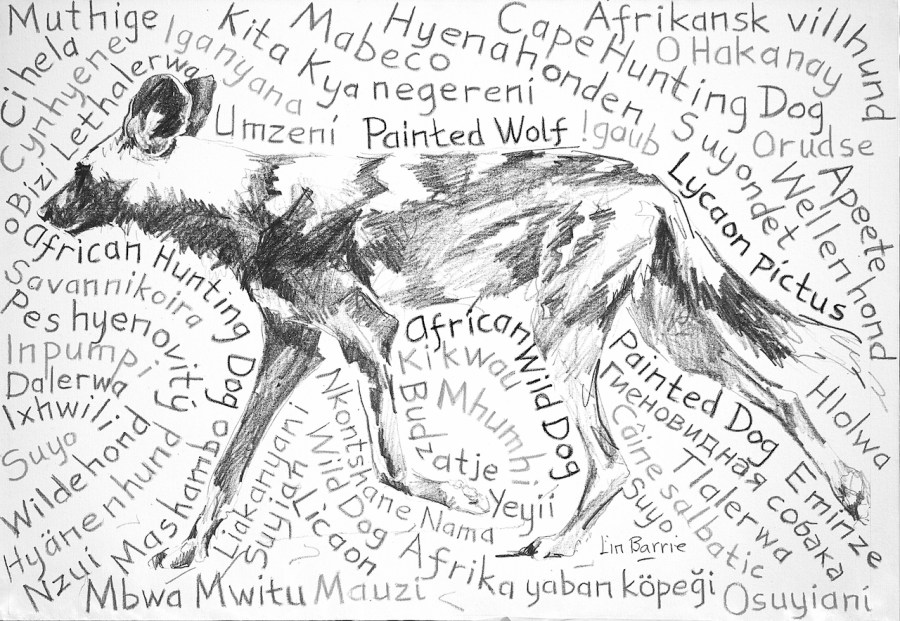 Muthige
Cihela
Cynhyene
o Bizi
Lethalerwa
Iganyana
Kita Kya negereni
Mabeco
Hyenahonden
Cape Hunting Dog
Afrikansk villhund
O Hakanay
Orudse
Umzeni
Painted Wolf
!gaub
Suyondet
Wellenhond
Apeete
Lycaon Pictus
African Hunting Dog
Savannikoira
Pes hyenovity
Inpumpi
Dalerwa
Ixhwili
Suyo
Wildehond
Hyänenhund
Nzui
Mashambo
African Wild Dog
Kikwau
Mhumhi
Budzatje
Painted Dog
гиеновидная собака
Câine salbatic
Suyo
Tlalerwa
Eminze
Hlolwa
Liakanyani
Suyian
Licaon
Nkontshane
Wild Dog
Nama
Yeyii
Lin Barrie
Mbwa Mwitu
Mauzi
Afrika yaban köpeği
Osuyiani